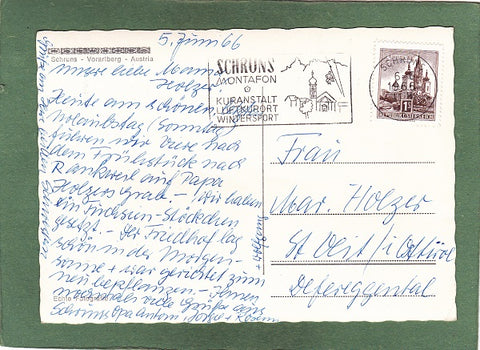 5. Juni 66
Schruns - Vorarlberg - Austria
unsere liebe Mama
Holzer!
Heute am schönen
(Sonntag)
fuhren wir nach
dem Frühstück nach
Rankweil auf Papa
Holzers Grab. - Wir haben
ein Fuchsien-Stöckchen
gesetzt. - Der Friedhof lag
schön in der Morgen-
sonne + war gerichtet zum
neu bepflanzen. -
nochmals viele Grüße aus
Schruns Opa Antoni,
+ Wolfgang
Echte Fotografie
SCHRUNS
MONTAFON
KURANSTALT
LUFTKURORT
WINTERSPORT
SCHRUNS
REPUBLIK ÖSTERREICH
Frau
Mar. Holzer
St Veit i/Osttirol
Defereggental